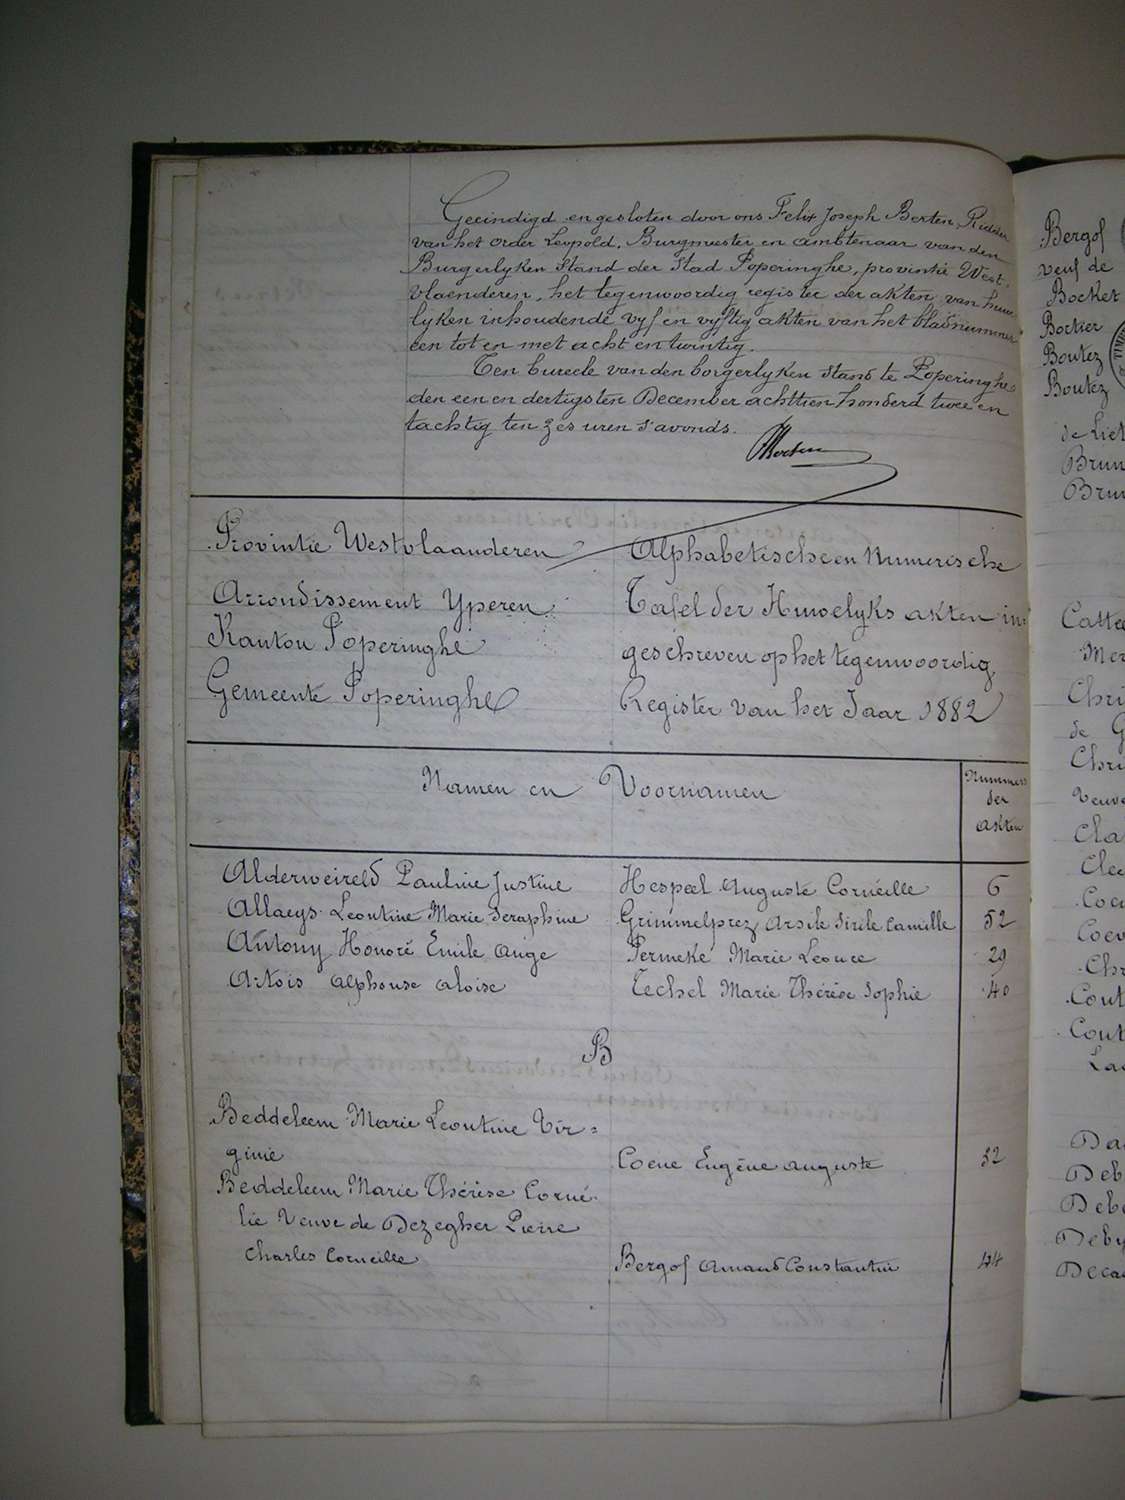 Geeindigd en gesloten door ons Felix Joseph Berten, Ridder
van het order Leopold, Burgmeester en ambtenaar van den
Burgerlyken Stand der Stad Poperinghe, provintie West-
vlaenderen, het tegenwoordig register der akten van huwe-
lyken inhoudende vyf en vyftig akten van het bladnummer
een tot en met acht en twintig.
Ten bureele van den borgerlyken stand te Poperinghe
den een en dertigsten December achttien honderd twee en
tachtig ten zes uren s'avonds.
Provintie Westvlaanderen
Arrondissement Yperen
Kanton Poperinghe
Gemeente Poperinghe
Alphabetische en Numerische
Tafel der Huwelyks akten in-
geschreven op het tegenwoordig
Register van het Jaar 1882
Namen en Voornamen
Nummers
der
akten
Alderweireld Pauline Justine Hespeel Auguste Cornéille 6
Allaeys Leontine Marie Seraphine Grimmelprez Arsile Sirile Camille 52
Antony Honoré Emile Ange Permeke Marie Leonce 29
Artois Alphonse Aloise Techel Marie Thérèse Sophie 40
B
Beddeleem Marie Leontine Vir=
ginie Coene Eugène Auguste 32
Beddeleem Marie Thérèse Corné-
lie Veuve de Dezegher Pierre
Charles Corneille Bergof Amand Constantin 44
Bergof
veuf de
Bocket
Bortier
Boutez
Boutez
Brun
Catte
Mer
Chri
de G
Chri
Veuve
Cla
Coev
Chr
Cout
Cout
Da
Deb
Deb
Deby
Deca